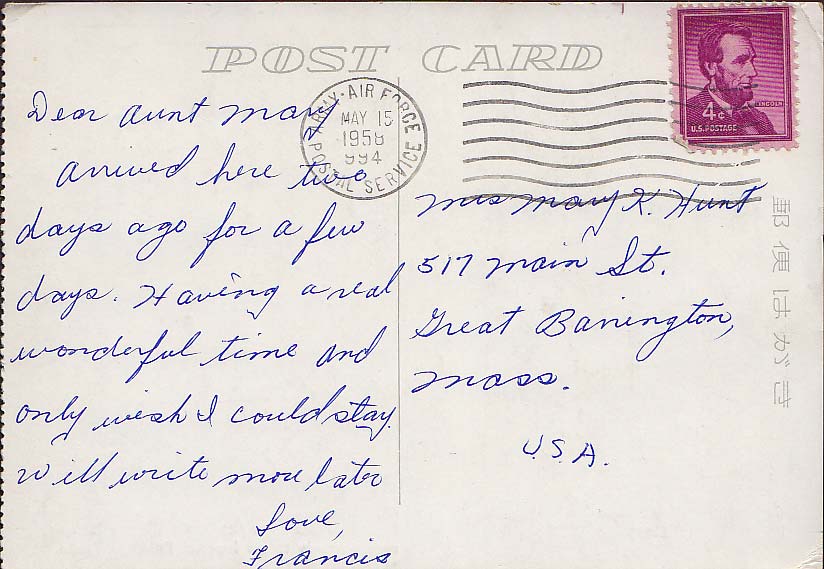 POST CARD
ARMY-AIR FORCE
POSTAL SERVICE
MAY 15
1958
994
4¢
LINCOLN
U.S. POSTAGE
Dear Aunt Mary
Arrived here two
days ago for a few
days. Having a real
wonderful time and
only wish I could stay.
Will write more later
Love,
Francis
Mrs Mary K. Hunt
517 Main St.
Great Barrington,
Mass.
U.S.A.
郵便はがき